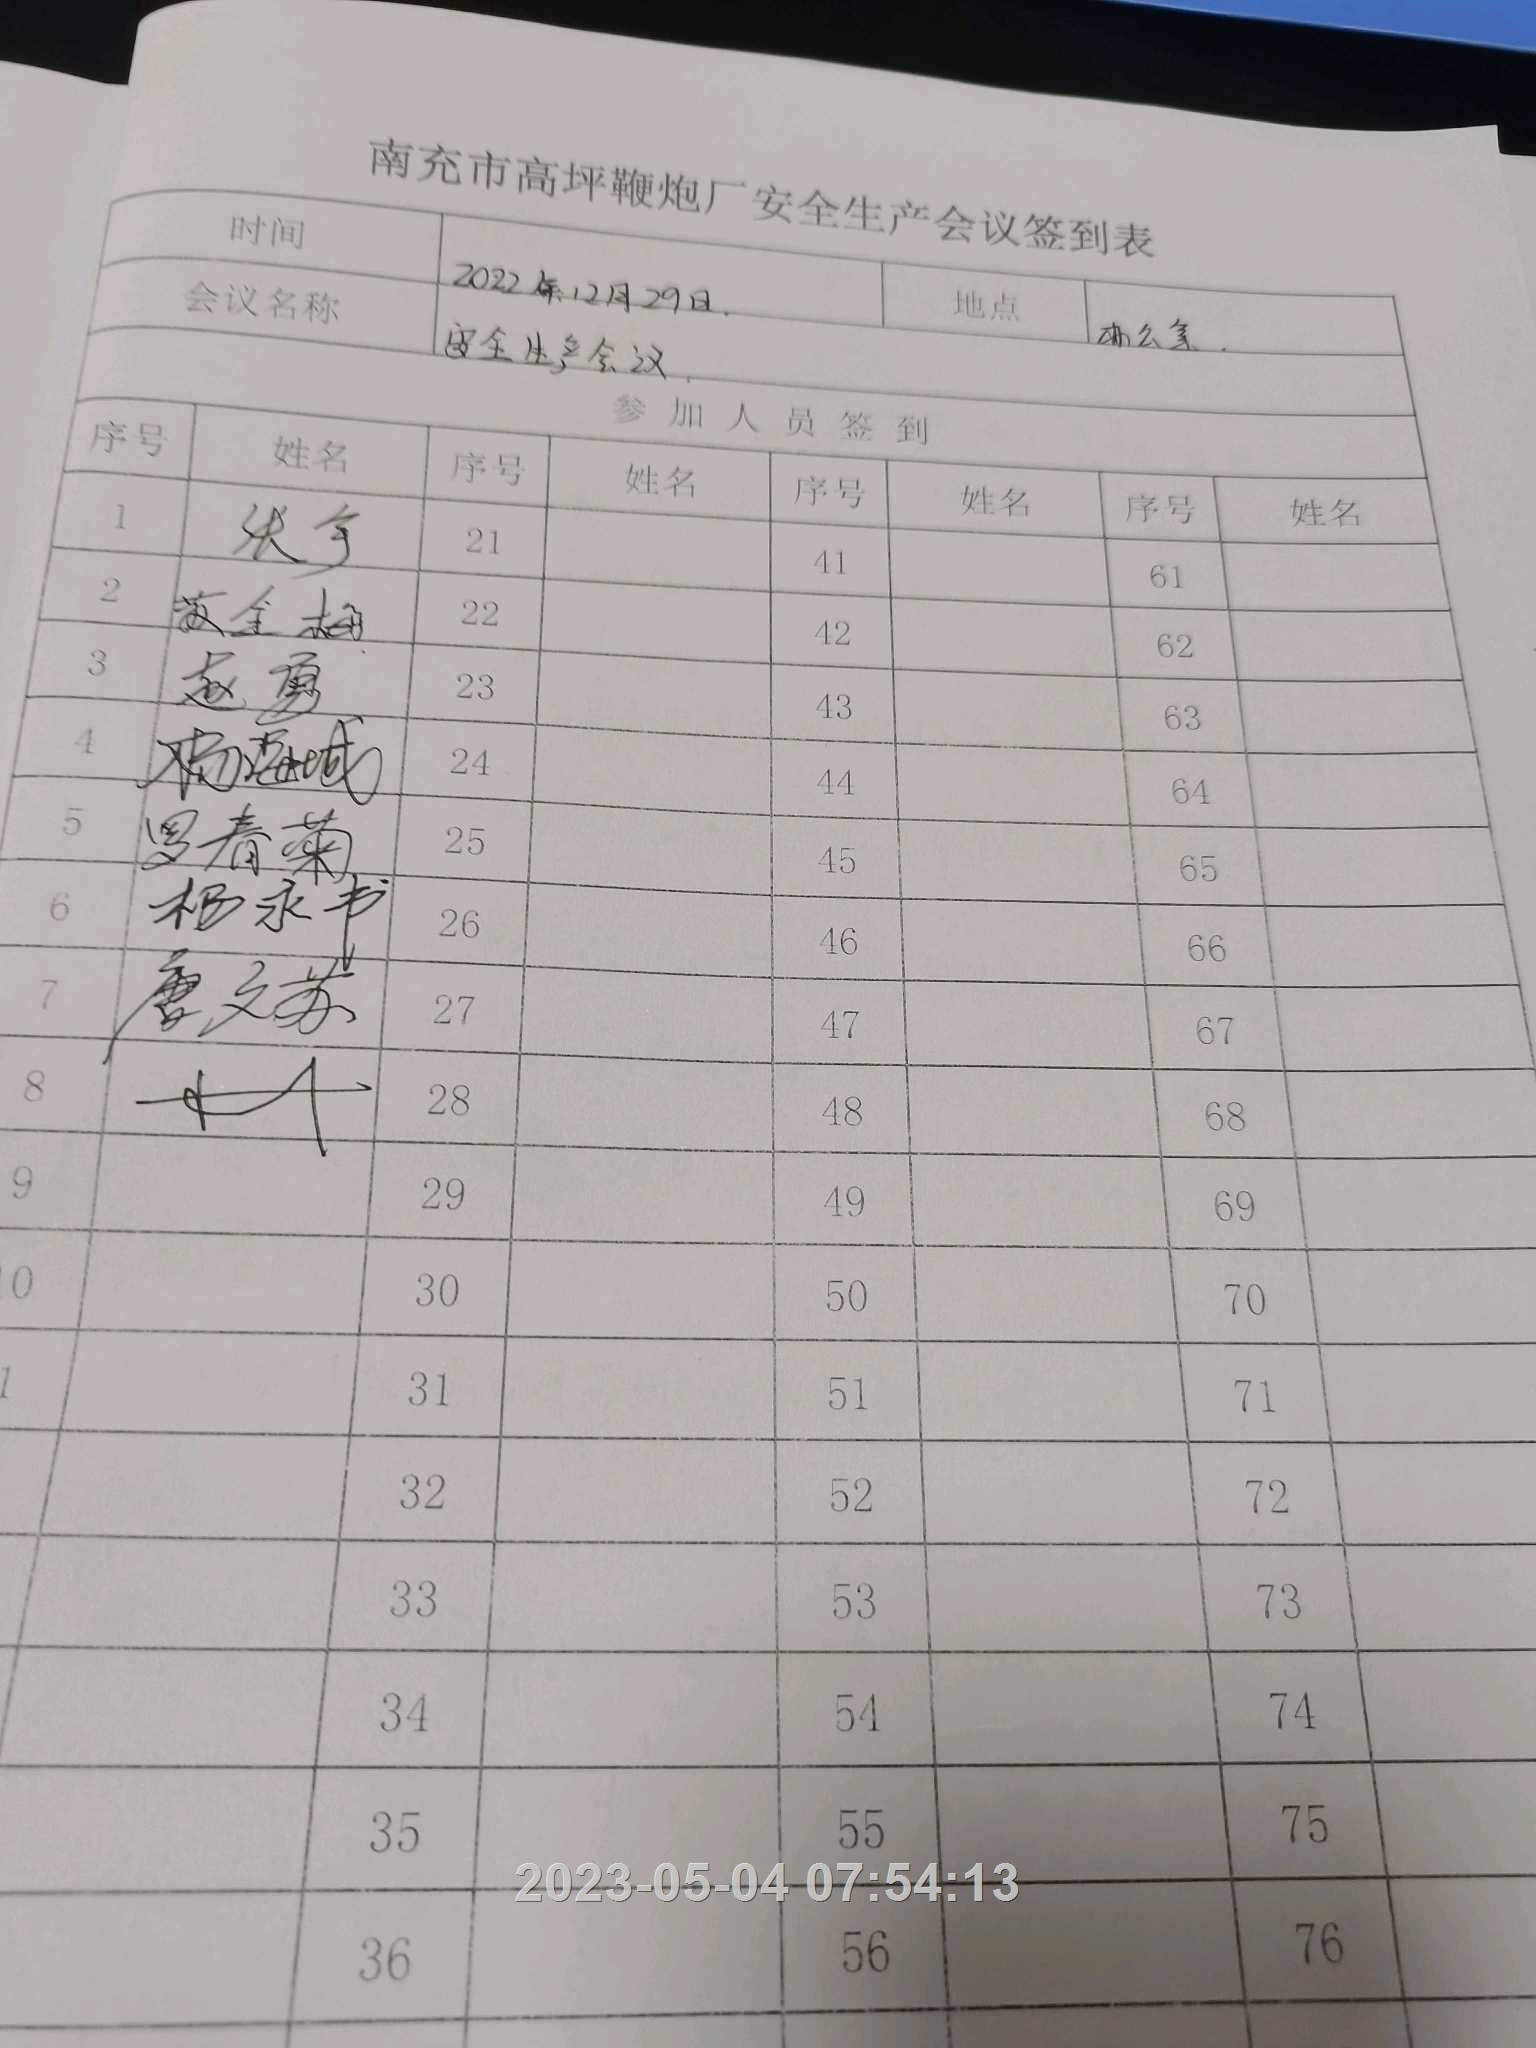 南充市高坪鞭炮厂安全生产会议签到表
时间 2022年12月29日. 地点 办公室.
会议名称 安全生产会议.
参加人员签到
序号 姓名 序号 姓名 序号 姓名 序号 姓名
1 张宇 21 41 61
2 金梅 22 42 62
3 赵勇 23 43 63
4 杨海城 24 44 64
5 罗春菊 25 45 65
6 杨永书 26 46 66
7 唐文苏 27 47 67
8 28 48 68
9 29 49 69
10 30 50 70
1 31 51 71
32 52 72
33 53 73
34 54 74
35 55 75
2023-05-04 07:54:13
36 56 76